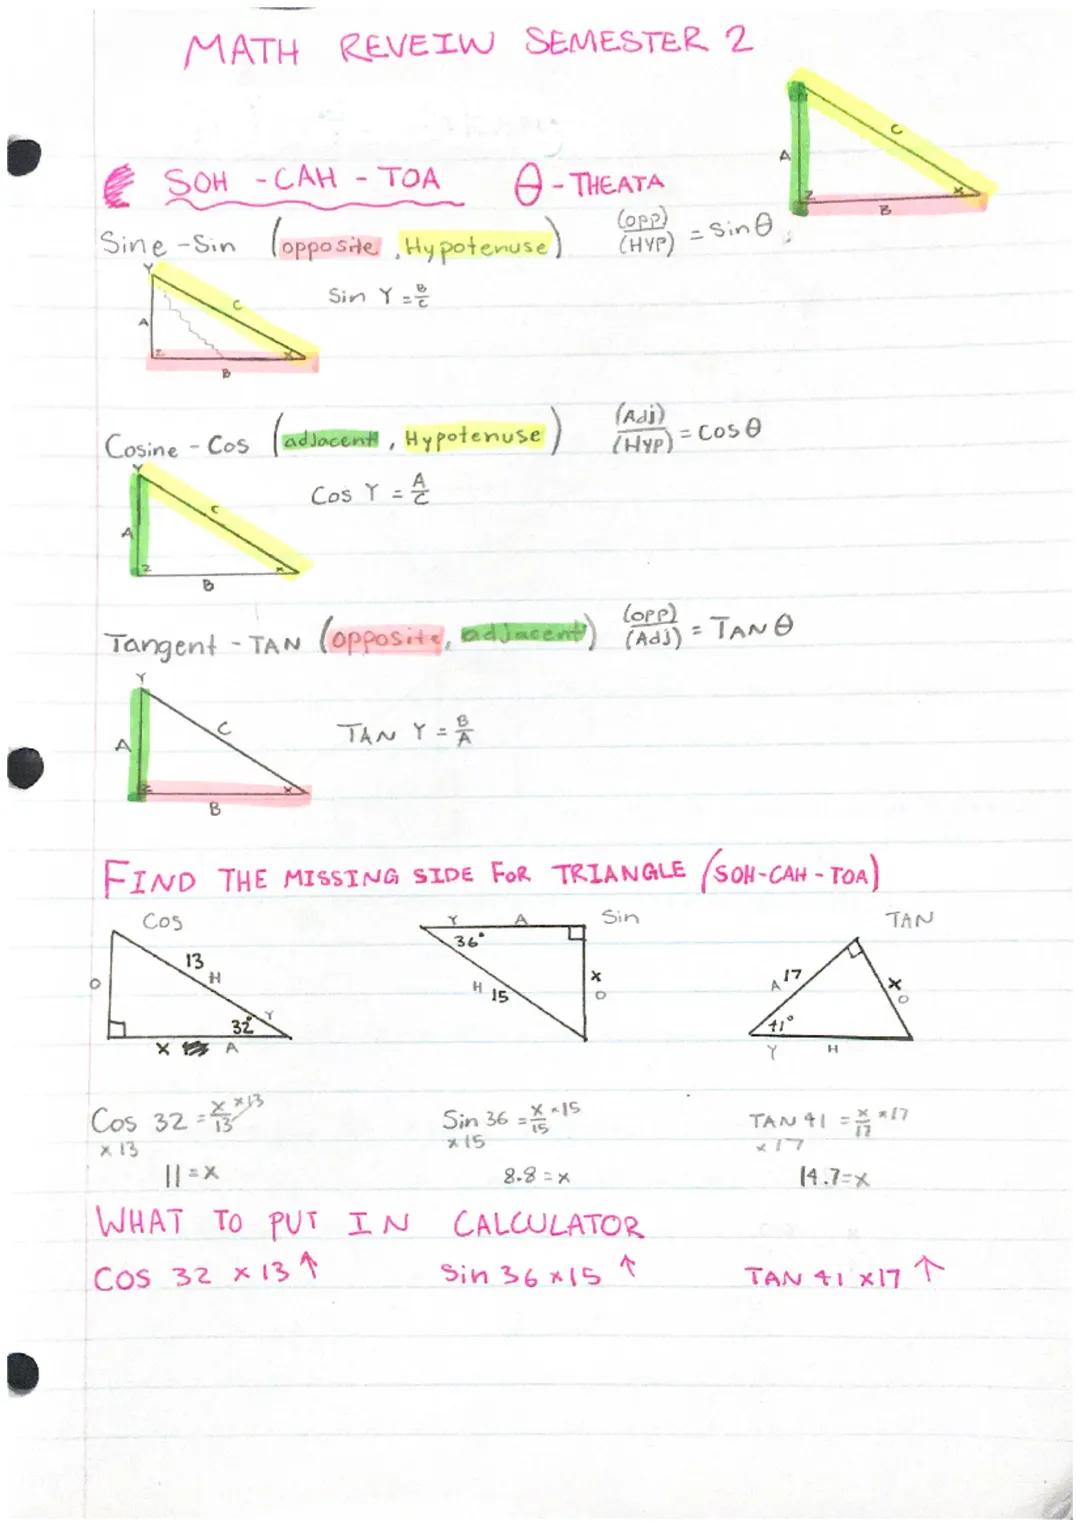 MATH REVEIW SEMESTER 2
A C
Z X
B
SOH - CAH - TOA θ - THEATA
Sine - Sin (opposite, Hypotenuse) (OPP)/(HYP) = Sin θ
Y
Sin Y = B/C
A C
Z X
B
Cosine - Cos (adjacent, Hypotenuse) (Adj)/(HYP) = Cos θ
Y
Cos Y = A/C
A C
Z X
B
Tangent - TAN (opposite, adjacent) (OPP)/(Adj) = TAN θ
Y
TAN Y = B/A
A C
Z X
B
FIND THE MISSING SIDE FOR TRIANGLE (SOH-CAH-TOA)
Cos Sin TAN
O 13 H 32° Y X A
Y A 36° H 15 X O
A 17 X O 41° Y H
Cos 32 = X/13 ×13
×13
11 = X
Sin 36 = X/15 ×15
×15
8.8 = X
TAN 41 = X/17 ×17
×17
14.7 = X
WHAT TO PUT IN CALCULATOR
COS 32 × 13 ↑ Sin 36 ×15 ↑ TAN 41 ×17 ↑